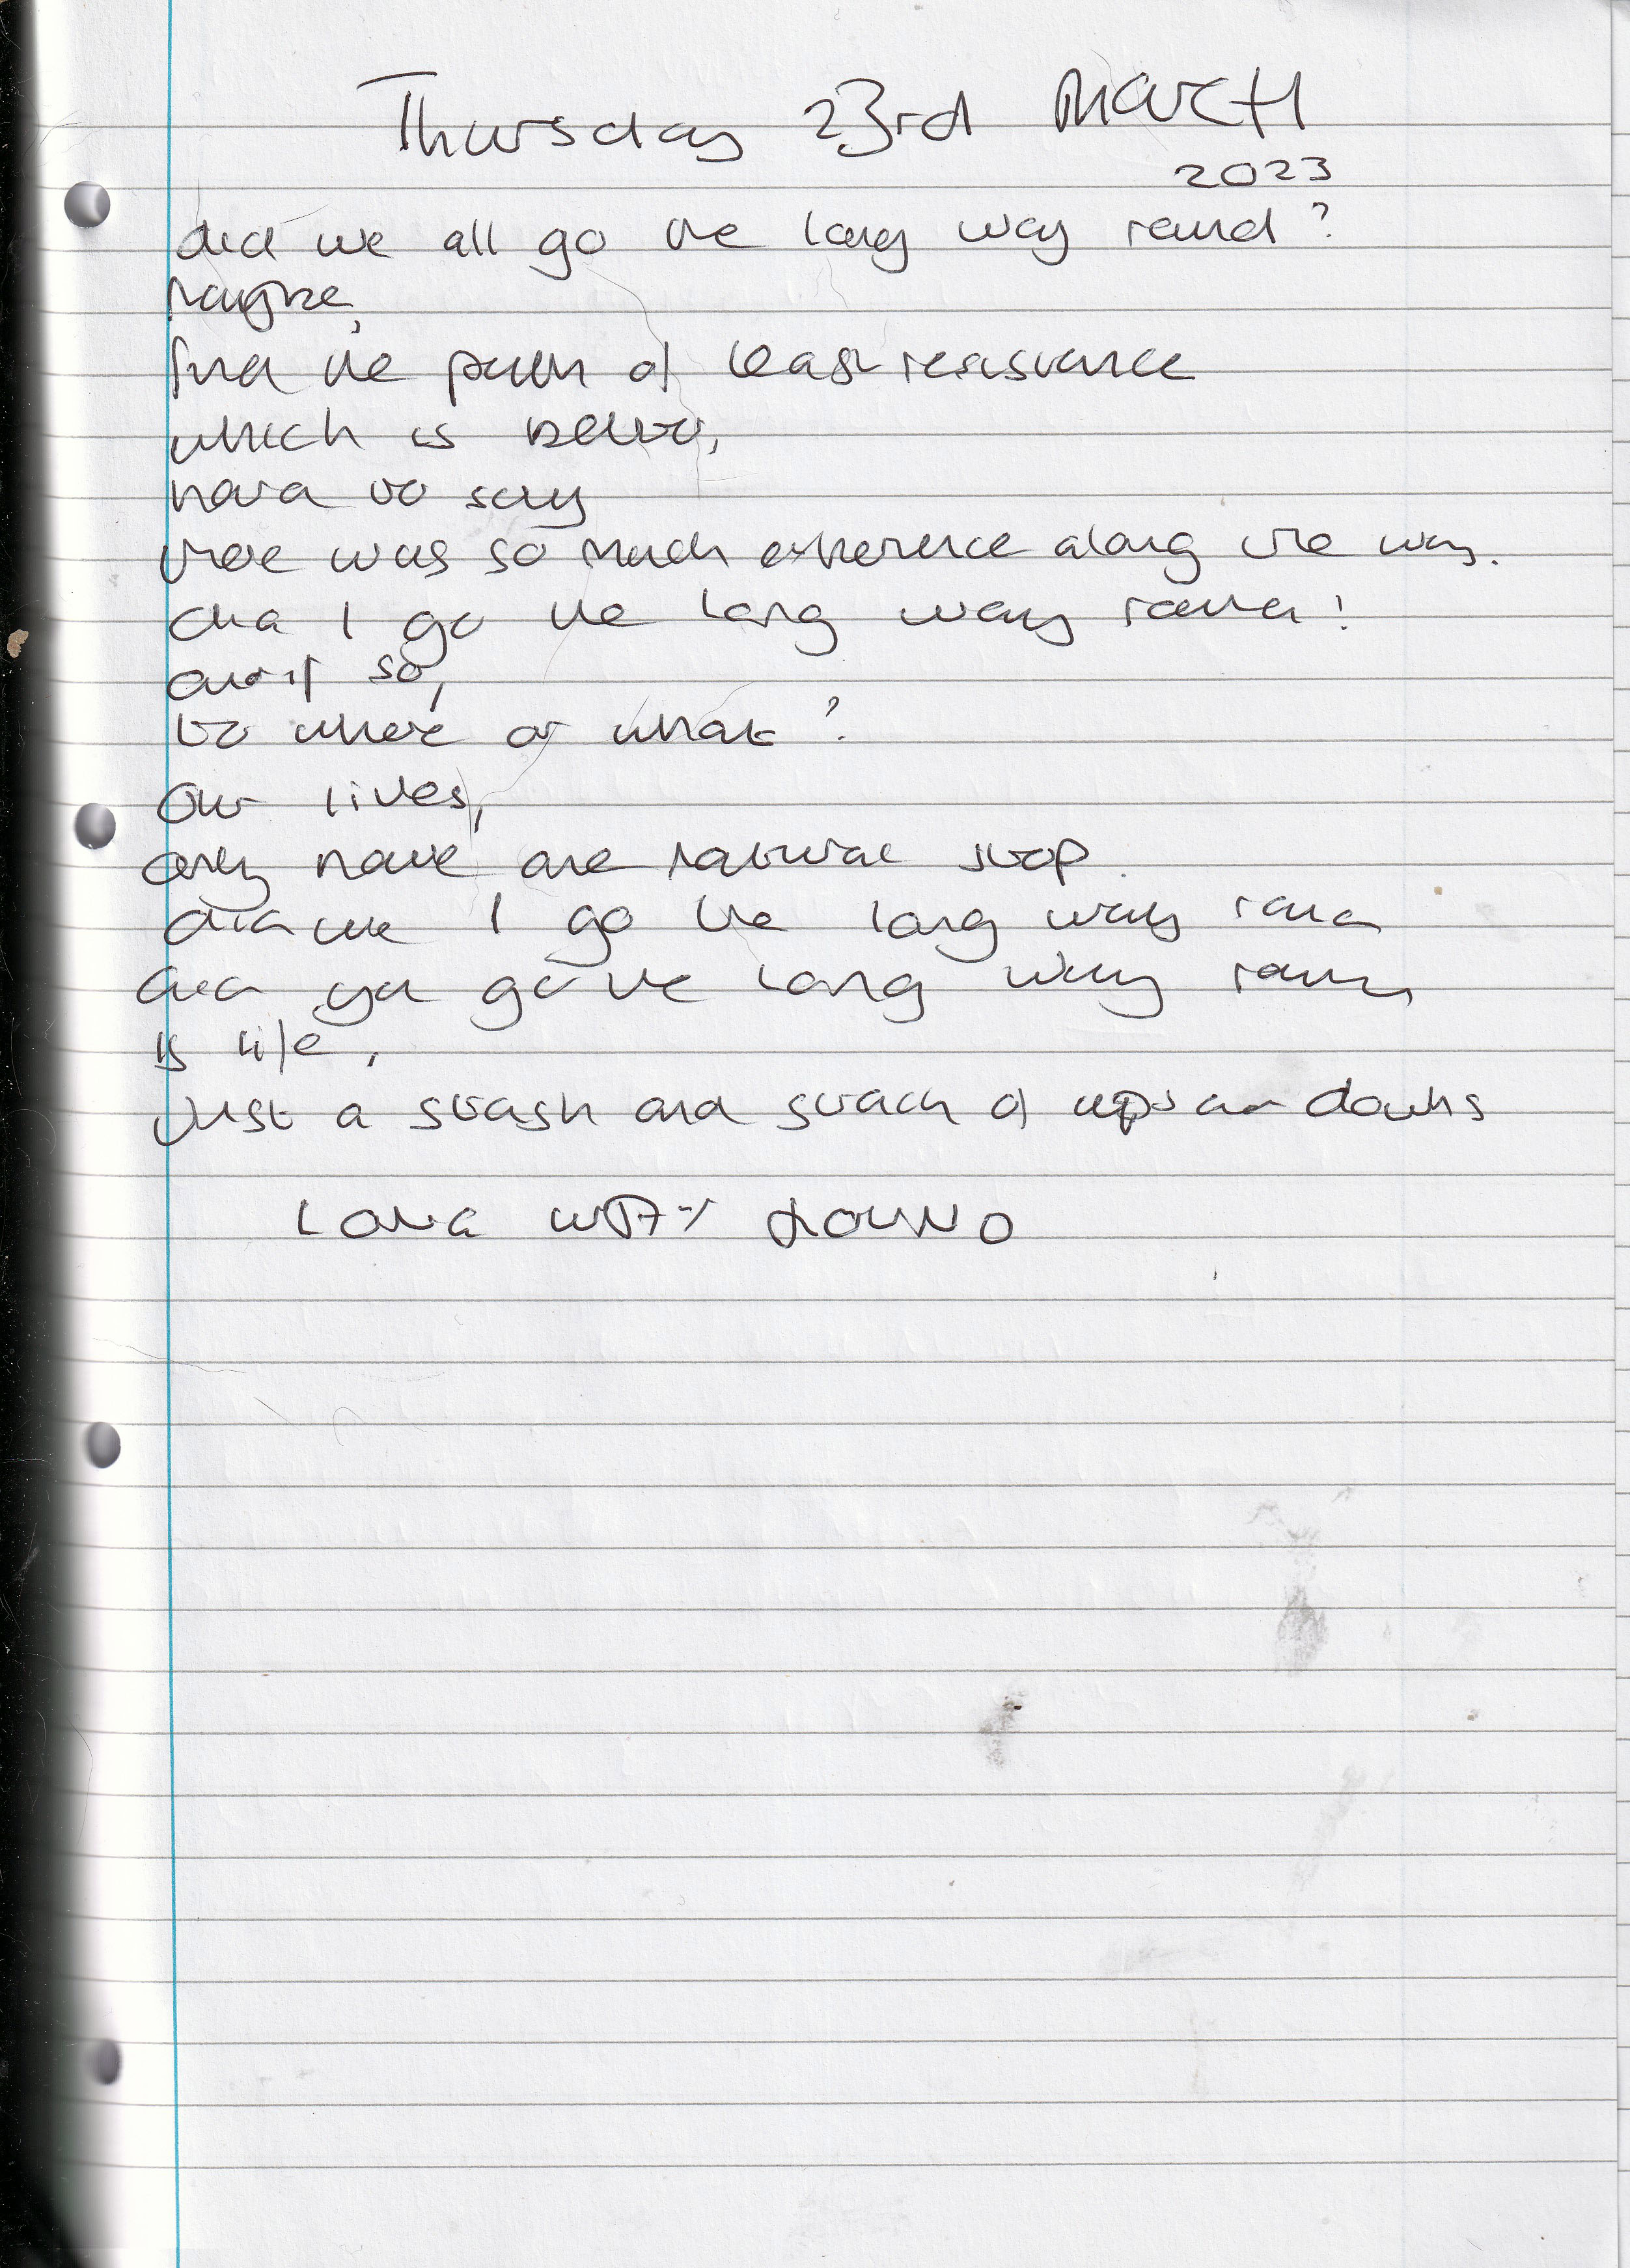 Thursday 23rd MARCH
2023
did we all go the long way round?
maybe,
find the path of least resistance
which is better,
hard to say
there was so much experience along the way.
did I go the long way round!
and if so,
to where or what?
Our lives,
only have one natural stop.
did we I go the long way round
did you go the long way round
is life,
Just a stash and stack of ups and downs
LONG WAY ROUND